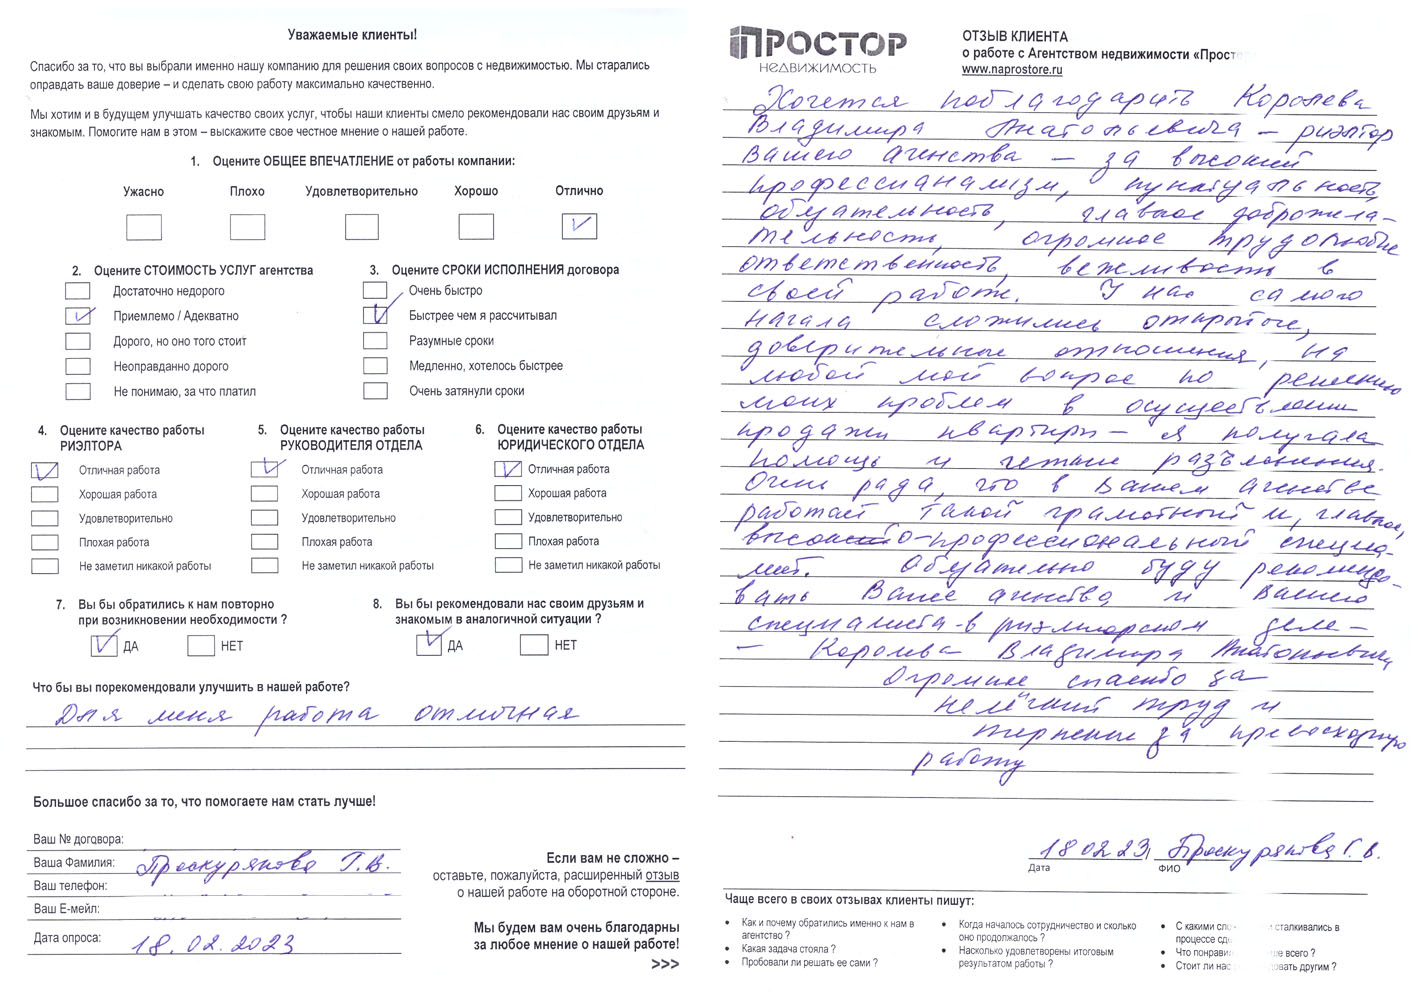 Уважаемые клиенты!
Спасибо за то, что вы выбрали именно нашу компанию для решения своих вопросов с недвижимостью. Мы старались
оправдать ваше доверие – и сделать свою работу максимально качественно.
Мы хотим и в будущем улучшать качество своих услуг, чтобы наши клиенты смело рекомендовали нас своим друзьям и
знакомым. Помогите нам в этом – выскажите свое честное мнение о нашей работе.
1. Оцените ОБЩЕЕ ВПЕЧАТЛЕНИЕ от работы компании:
Ужасно Плохо Удовлетворительно Хорошо Отлично
2. Оцените СТОИМОСТЬ УСЛУГ агентства
Достаточно недорого
Приемлемо / Адекватно
Дорого, но оно того стоит
Неоправданно дорого
Не понимаю, за что платил
3. Оцените СРОКИ ИСПОЛНЕНИЯ договора
Очень быстро
Быстрее чем я рассчитывал
Разумные сроки
Медленно, хотелось быстрее
Очень затянули сроки
4. Оцените качество работы
РИЭЛТОРА
Отличная работа
Хорошая работа
Удовлетворительно
Плохая работа
Не заметил никакой работы
5. Оцените качество работы
РУКОВОДИТЕЛЯ ОТДЕЛА
Отличная работа
Хорошая работа
Удовлетворительно
Плохая работа
Не заметил никакой работы
6. Оцените качество работы
ЮРИДИЧЕСКОГО ОТДЕЛА
Отличная работа
Хорошая работа
Удовлетворительно
Плохая работа
Не заметил никакой работы
7. Вы бы обратились к нам повторно
при возникновении необходимости ?
ДА НЕТ
8. Вы бы рекомендовали нас своим друзьям и
знакомым в аналогичной ситуации ?
ДА НЕТ
Что бы вы порекомендовали улучшить в нашей работе?
Для меня работа отличная
Большое спасибо за то, что помогаете нам стать лучше!
Ваш № договора:
Ваша Фамилия: Проскурякова Г.В.
Ваш телефон:
Ваш Е-мейл:
Дата опроса: 18.02.2023
Если вам не сложно –
оставьте, пожалуйста, расширенный отзыв
о нашей работе на оборотной стороне.
Мы будем вам очень благодарны
за любое мнение о нашей работе!
>>>
ПРОСТОР
НЕДВИЖИМОСТЬ
ОТЗЫВ КЛИЕНТА
о работе с Агентством недвижимости «Прост
www.naprostore.ru
Хочется поблагодарить Королева
Владимира Анатольевича – риэлтор
Вашего агенства – за высокий
профессианализм, пунктуальность,
обязательность, главное доброжела-
тельность, огромное трудолюбие
ответственность, вежливость в
своей работе. У нас самого
начала сложились открытые,
доверительные отношения, на
любой мой вопрос по решению
моих проблем в осуществлении
продажи квартиры – я получала
помощь и четкие разъяснения.
Очень рада, что в Вашем агенстве
работает такой грамотный и, главное,
высоко-профессиональный специа-
лист. Обязательно буду рекомендо-
вать Ваше агенство и Вашего
специалиста в риэлторском деле –
– Королева Владимира Анатольевича
Огромное спасибо за
нелёгкий труд и
терпение за превосходную
работу
18 02 23 Проскурякова Г.В.
Дата ФИО
Чаще всего в своих отзывах клиенты пишут:
• Как и почему обратились именно к нам в
агентство ?
• Какая задача стояла ?
• Пробовали ли решать ее сами ?
• Когда началось сотрудничество и сколько
оно продолжалось ?
• Насколько удовлетворены итоговым
результатом работы ?
• С какими сло сталкивались в
процессе сд
• Что понрави ше всего ?
• Стоит ли нас довать другим ?